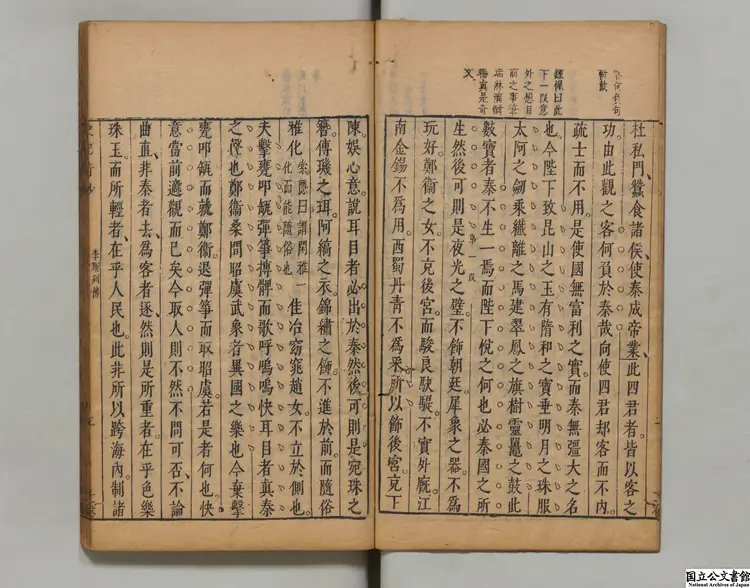 斬截
鍾惺曰此
下一段意
外之想目
前之事筆
端淋漓酣
暢真是奇
文
杜私門、蠶食諸侯、使秦成帝業、此四君者皆以客之
功由此觀之客何負於秦哉向使四君却客而不內
疏士而不用是使國無富利之實而秦無彊大之名
也今陛下致昆山之玉有隋和之寶垂明月之珠服
太阿之劒乘纖離之馬建翠鳳之旗樹靈鼉之鼓此
數寶者秦不生一焉而陛下悅之何也必秦國之所
第一段
生然後可則是夜光之璧不飾朝廷犀象之器不為
玩好鄭衞之女不充後宮而駿良駃騠不實外廐江
南金錫不為用西蜀丹青不為采所以飾後宮充下
陳娛心意說耳目者必出於秦然後可則是宛珠之
簪傅璣之珥阿縞之衣錦繡之飾不進於前而隨俗
雅化索隱曰謂閑雅一化而能隨俗也佳冶窈窕趙女不立於側也
夫擊甕叩缻彈箏搏髀而歌呼嗚嗚快耳目者真秦
之聲也鄭衞桑間昭虞武象者異國之樂也今棄擊
甕叩缻而就鄭衞退彈箏而取昭虞若是者何也快
意當前適觀而已矣今取人則不然不問可否不論
曲直非秦者去為客者逐然則是所重者在乎色樂
珠玉而所輕者在乎人民也此非所以跨海內制諸
李斯列傳
国立公文書館
National Archives of Japan